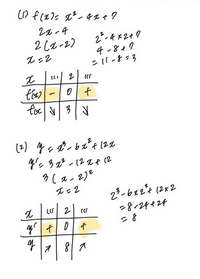 (1) f(x) = x² - 4x + 7
2x - 4
2(x-2)
x = 2
2² - 4×2 + 7
4 - 8 + 7
= 11 - 8 = 3
x | ... | 2 | ...
f(x) | - | 0 | +
f(x) | ↘ | 3 | ↘
(2) y = x³ - 6x² + 12x
y' = 3x² - 12x + 12
3(x-2)²
x = 2
2³ - 6×2² + 12×2
= 8 - 24 + 24
= 8
x | ... | 2 | ...
y' | + | 0 | +
y | ↗ | 8 | ↗